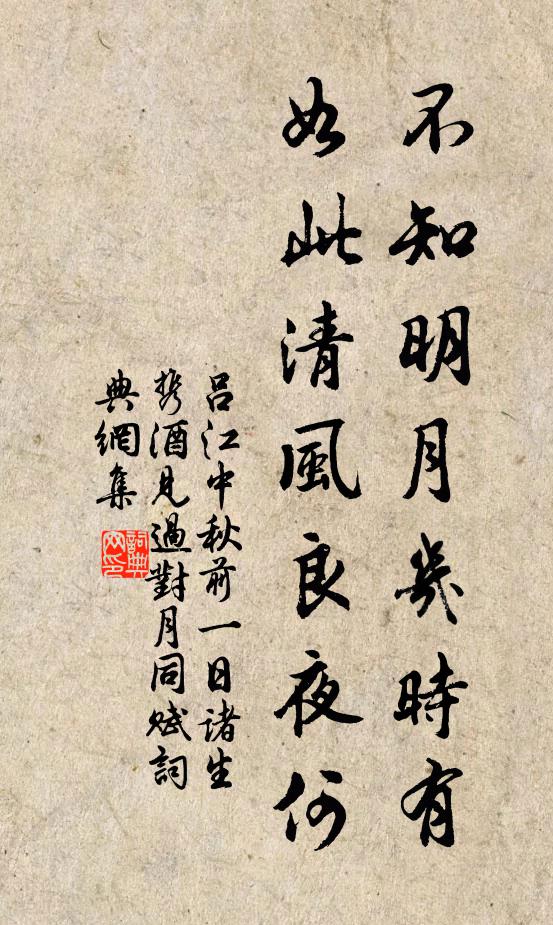 不知明月幾時有
如此清風良夜何
呂江中秋前一日诸生
携酒見過對月同賦詞
典網集
詞典
网印